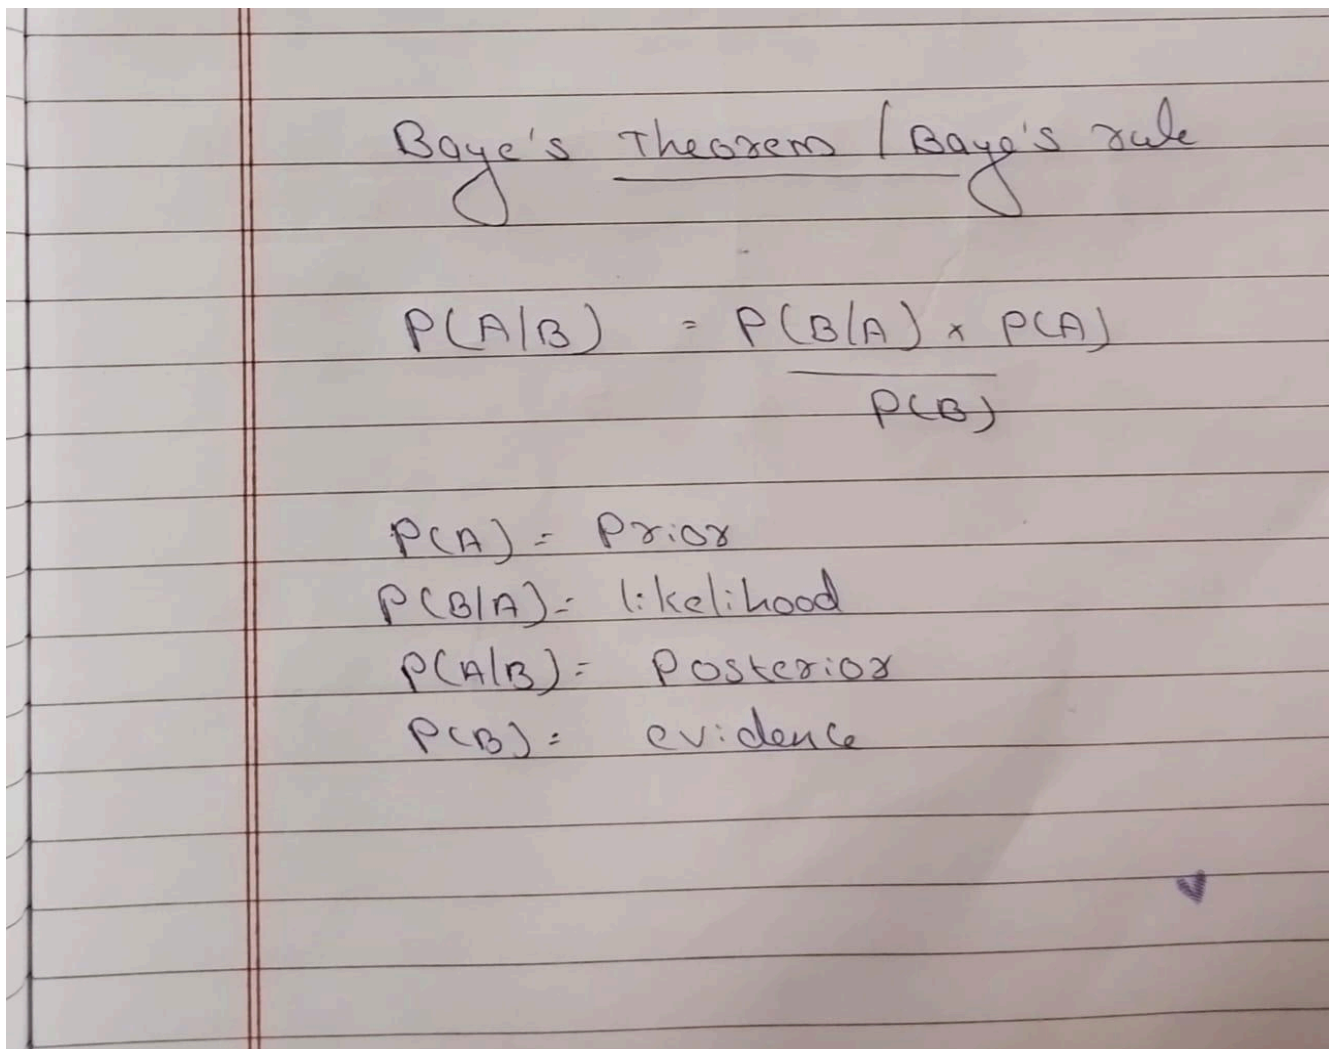 Baye's Theorem / Baye's rule
P(A/B) = P(B/A) × P(A)
P(B)
P(A) = Prior
P(B/A) = likelihood
P(A/B) = Posterior
P(B) = evidence